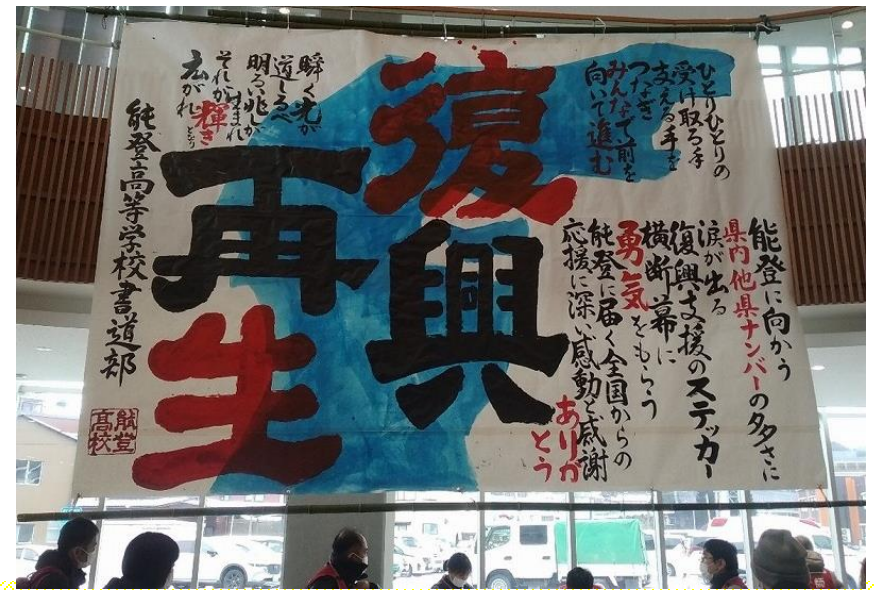 ひとりひとりの
受け取る手
支える手を
つなぎ
みんなで前を
向いて進む
能登に向かう
県内他県ナンバーの多さに
涙が出る
復興支援のステッカー
横断幕に
勇気をもらう
能登に届く全国からの
応援に深い感動と感謝
ありが
とう
復興
再生
瞬く光が
道しるべ
明るい兆しが
それが輝きとなり
広がれ
能登高等学校書道部
能登
高校